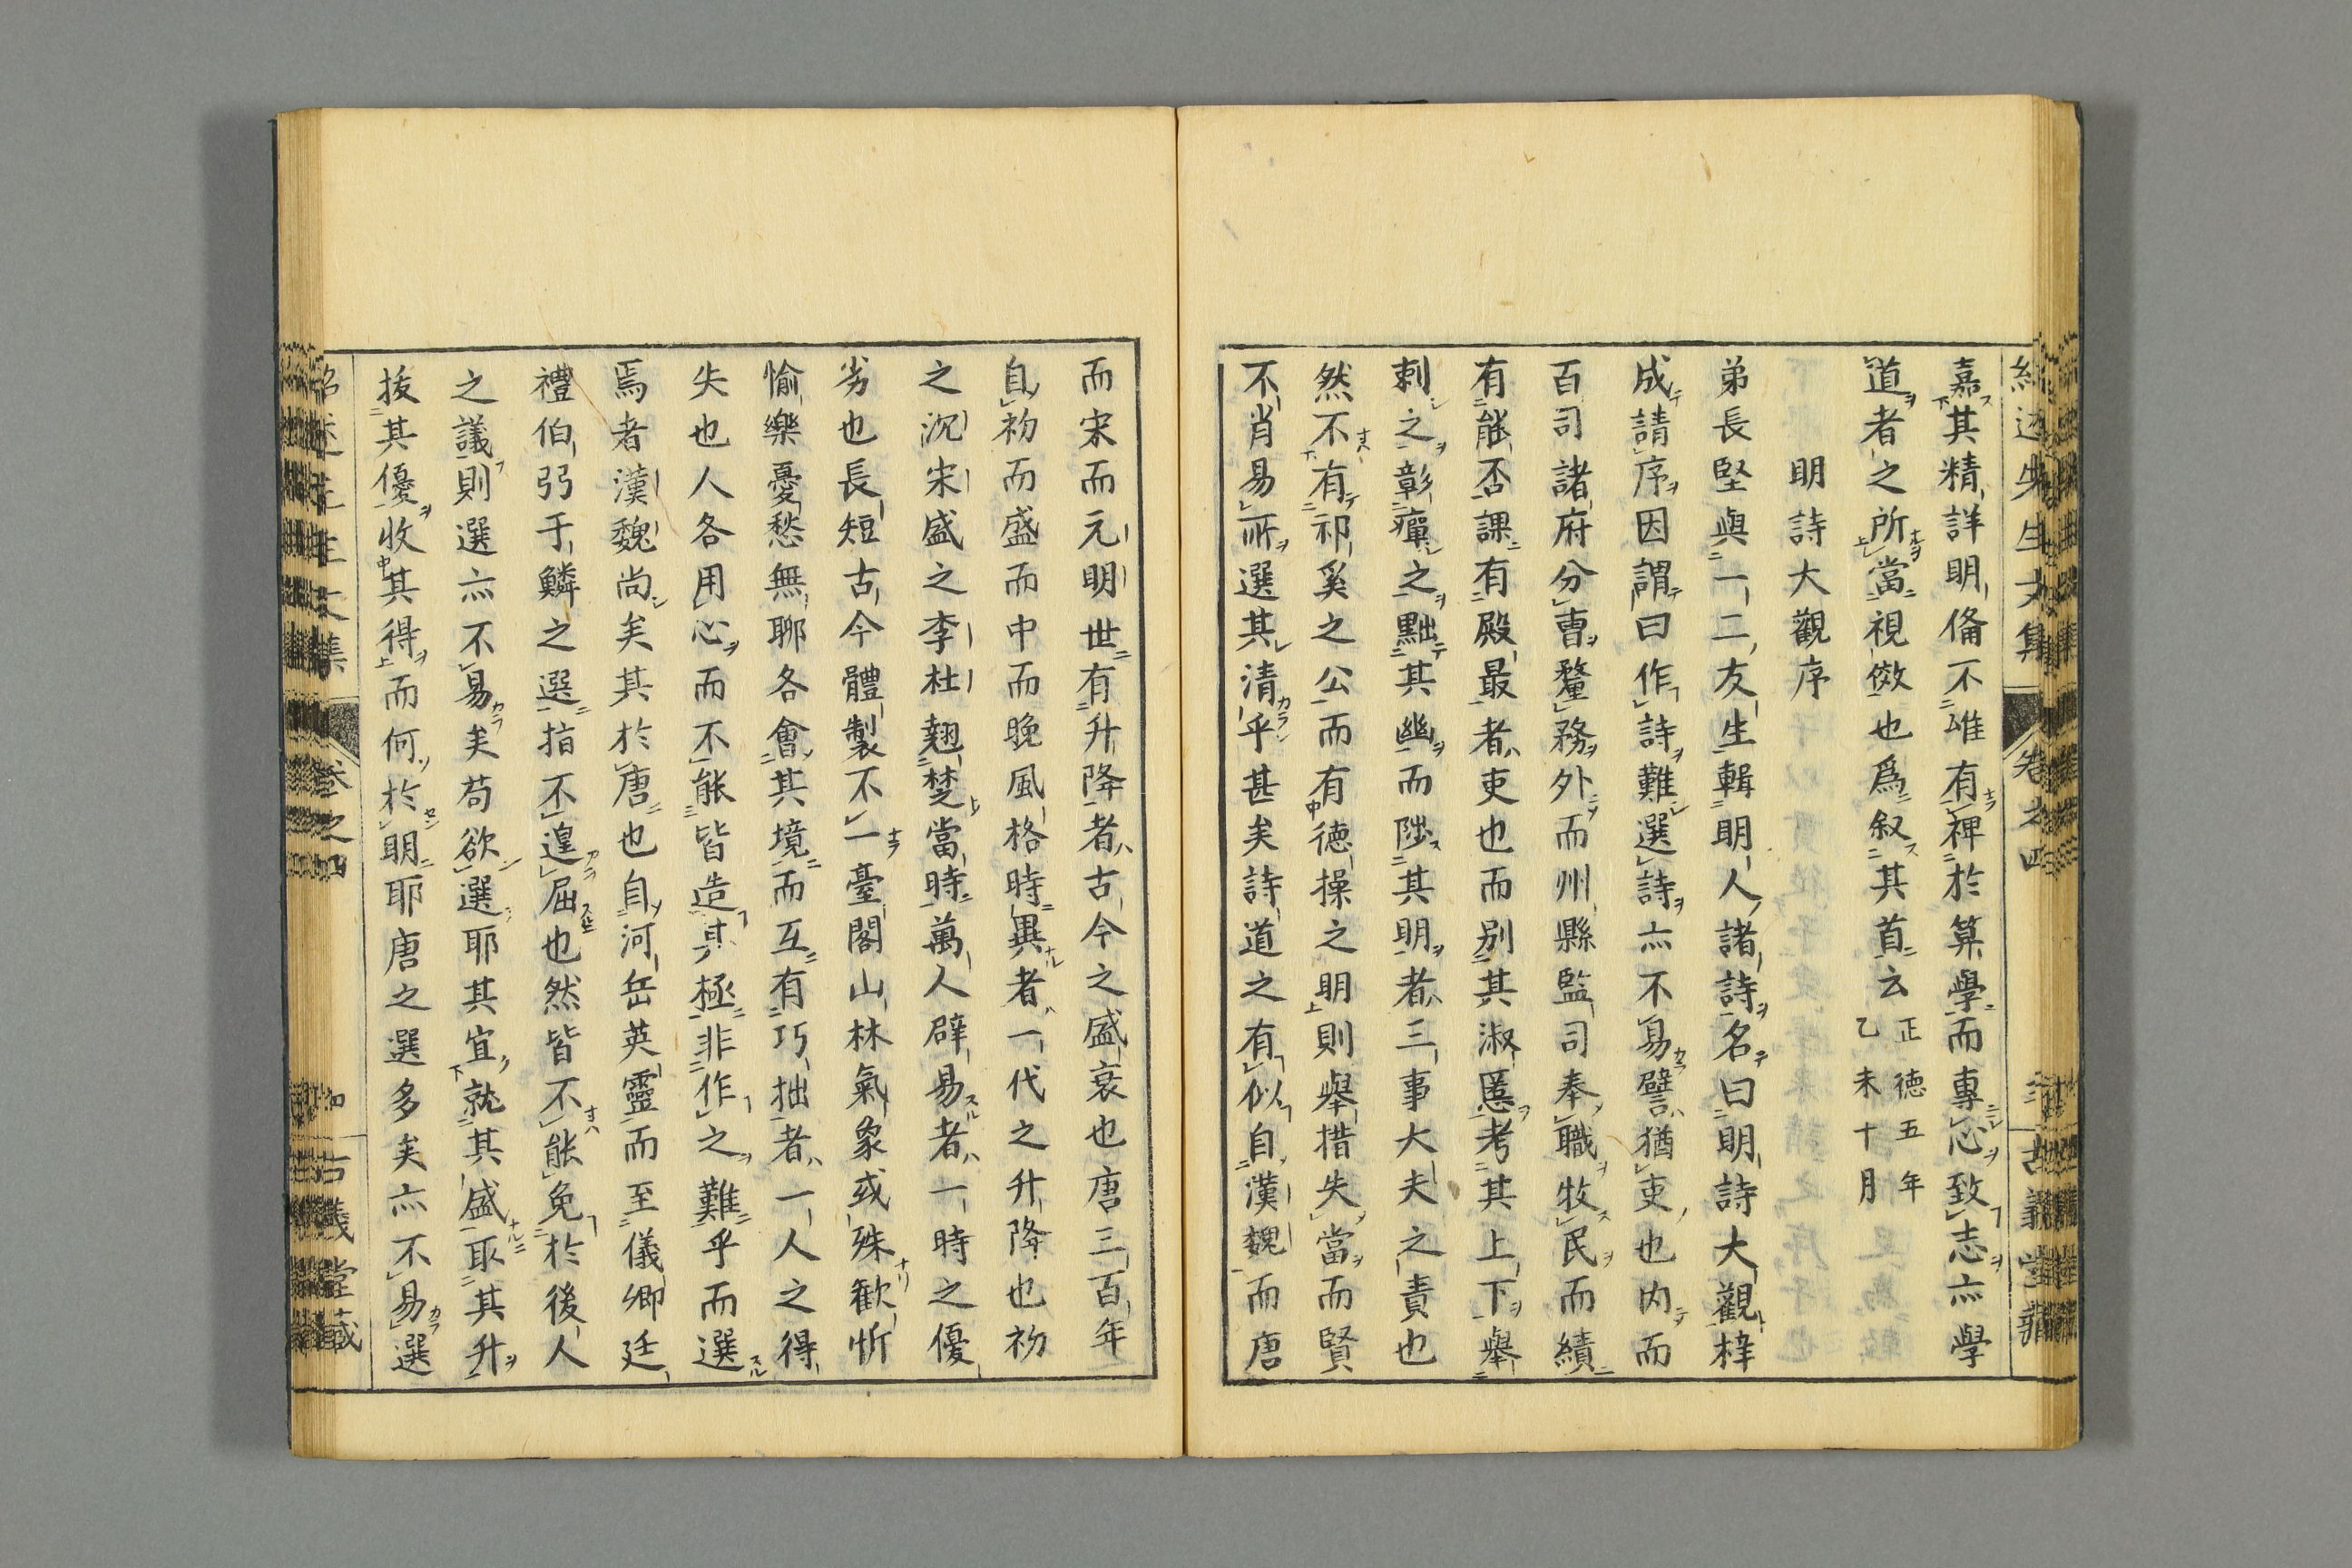 嘉其精詳明備不唯有裨於算學而專心致志亦學
道者之所當視傚也爲叙其首云正德五年乙未十月
明詩大觀序
弟長堅與一二友生輯明人諸詩名曰明詩大觀梓
成請序因謂曰作詩難選詩亦不易譬猶吏也内而
百司諸府分曹釐務外而州縣監司奉職牧民而績
有能否課有殿最者吏也而別其淑慝考其上下舉
刺之彰癉之黜其幽而陟其明者三事大夫之責也
然不有祁奚之公而有德操之明則舉措失當而賢
不肖易所選其清乎甚矣詩道之有似自漢魏而唐
而宋而元明世有升降者古今之盛衰也唐三百年
自初而盛而中而晚風格時異者一代之升降也初
之沈宋盛之李杜翹楚當時萬人辟易者一時之優
劣也長短古今體製不一臺閣山林氣象或殊歡忻
愉樂憂愁無聊各會其境而互有巧拙者一人之得
失也人各用心而不能皆造其極非作之難乎而選
焉者漢魏尚矣其於唐也自河岳英靈而至儀卿廷
禮伯弜于鱗之選指不遑屈也然皆不能免於後人
之議則選亦不易矣苟欲選耶其宜就其盛取其升
拔其優收其得而何於明耶唐之選多矣亦不易選